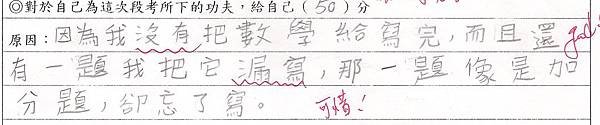 ◎對於自己為這次段考所下的功夫，給自己（50）分
原因：因為我沒有把數學給寫完，而且還
有一題我把它漏寫，那一題像是加
分題，卻忘了寫。 可惜！